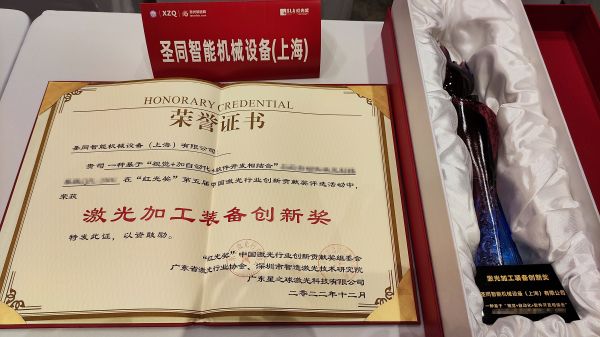 XZQ
圣同智能机械设备(上海)
HONORARY CREDENTIAL
荣誉证书
圣同智能机械设备（上海）有限公司
贵司一种基于“视觉+加自动化+软件开发相结合”
在“红光奖”第五届中国激光行业创新贡献奖评选活动中，
荣获
激光加工装备创新奖
特发此证，以资鼓励。
“红光奖”中国激光行业创新贡献奖组委会
广东省激光行业协会、深圳市智造激光技术研究院
广东星之球激光科技有限公司
二零二二年十二月
激光加工装备创新奖
圣同智能机械设备（上海）有限公司
一种基于“视觉+自动化+软件开发相结合”